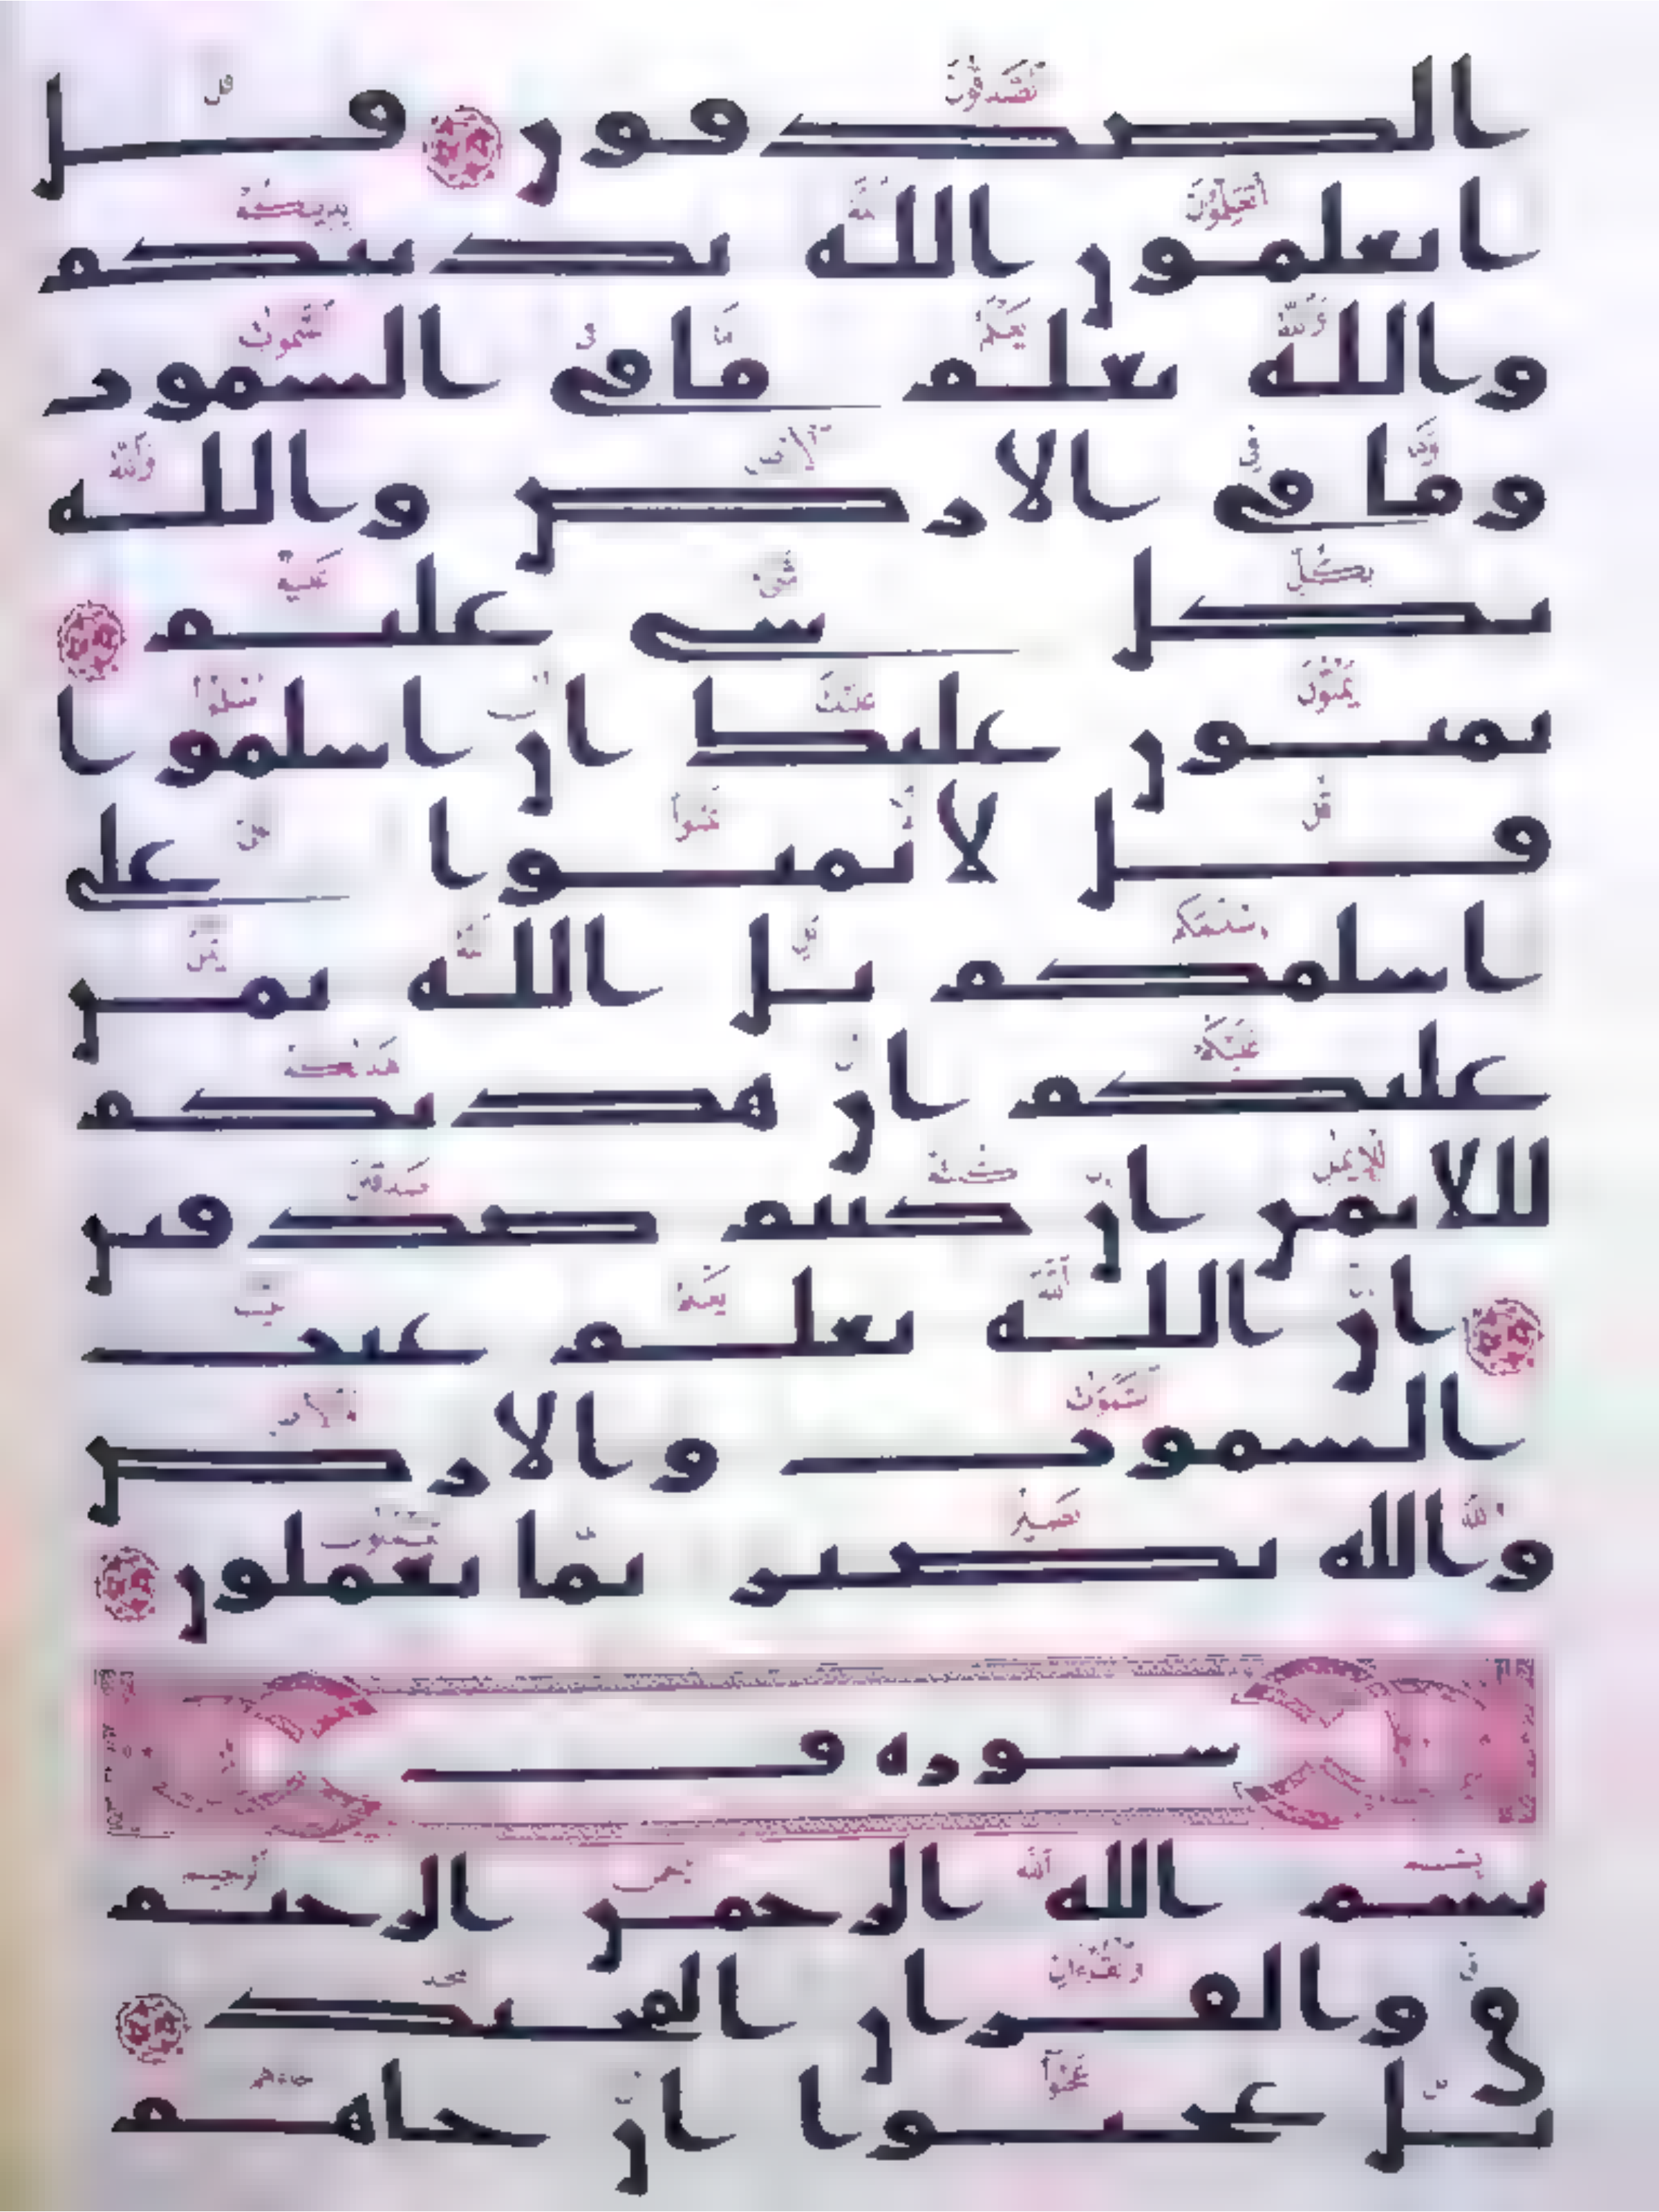 الصدقون قل
اتعلمون الله بدينكم
والله يعلم ما في السموت
وما في الارض والله
بكل شي عليم
يمنون عليك ان اسلموا
قل لا تمنوا على
اسلمكم بل الله يمن
عليكم ان هديكم
للايمن ان كنتم صدقين
ان الله يعلم غيب
السموت والارض
والله بصير بما تعملون
سورة ق
بسم الله الرحمن الرحيم
ق والقران المجيد
بل عجبوا ان جاهم